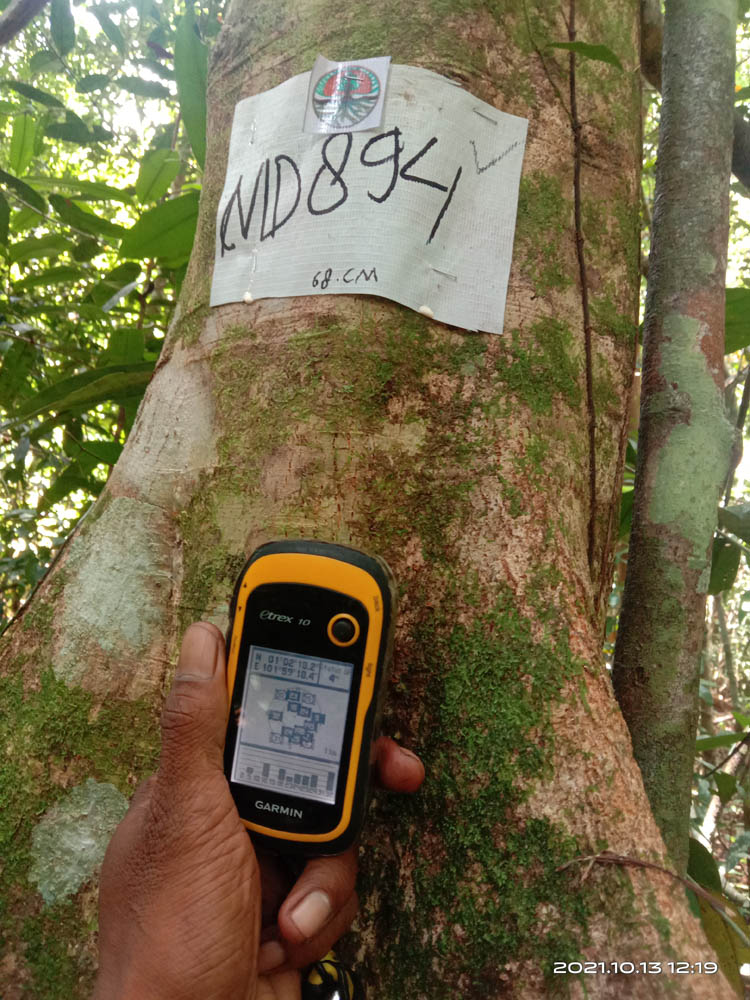 ND894
68.CM
eTrex 10
N 01°02'10.2"
E 101°59'10.4"
4m
GARMIN
2021.10.13 12:19